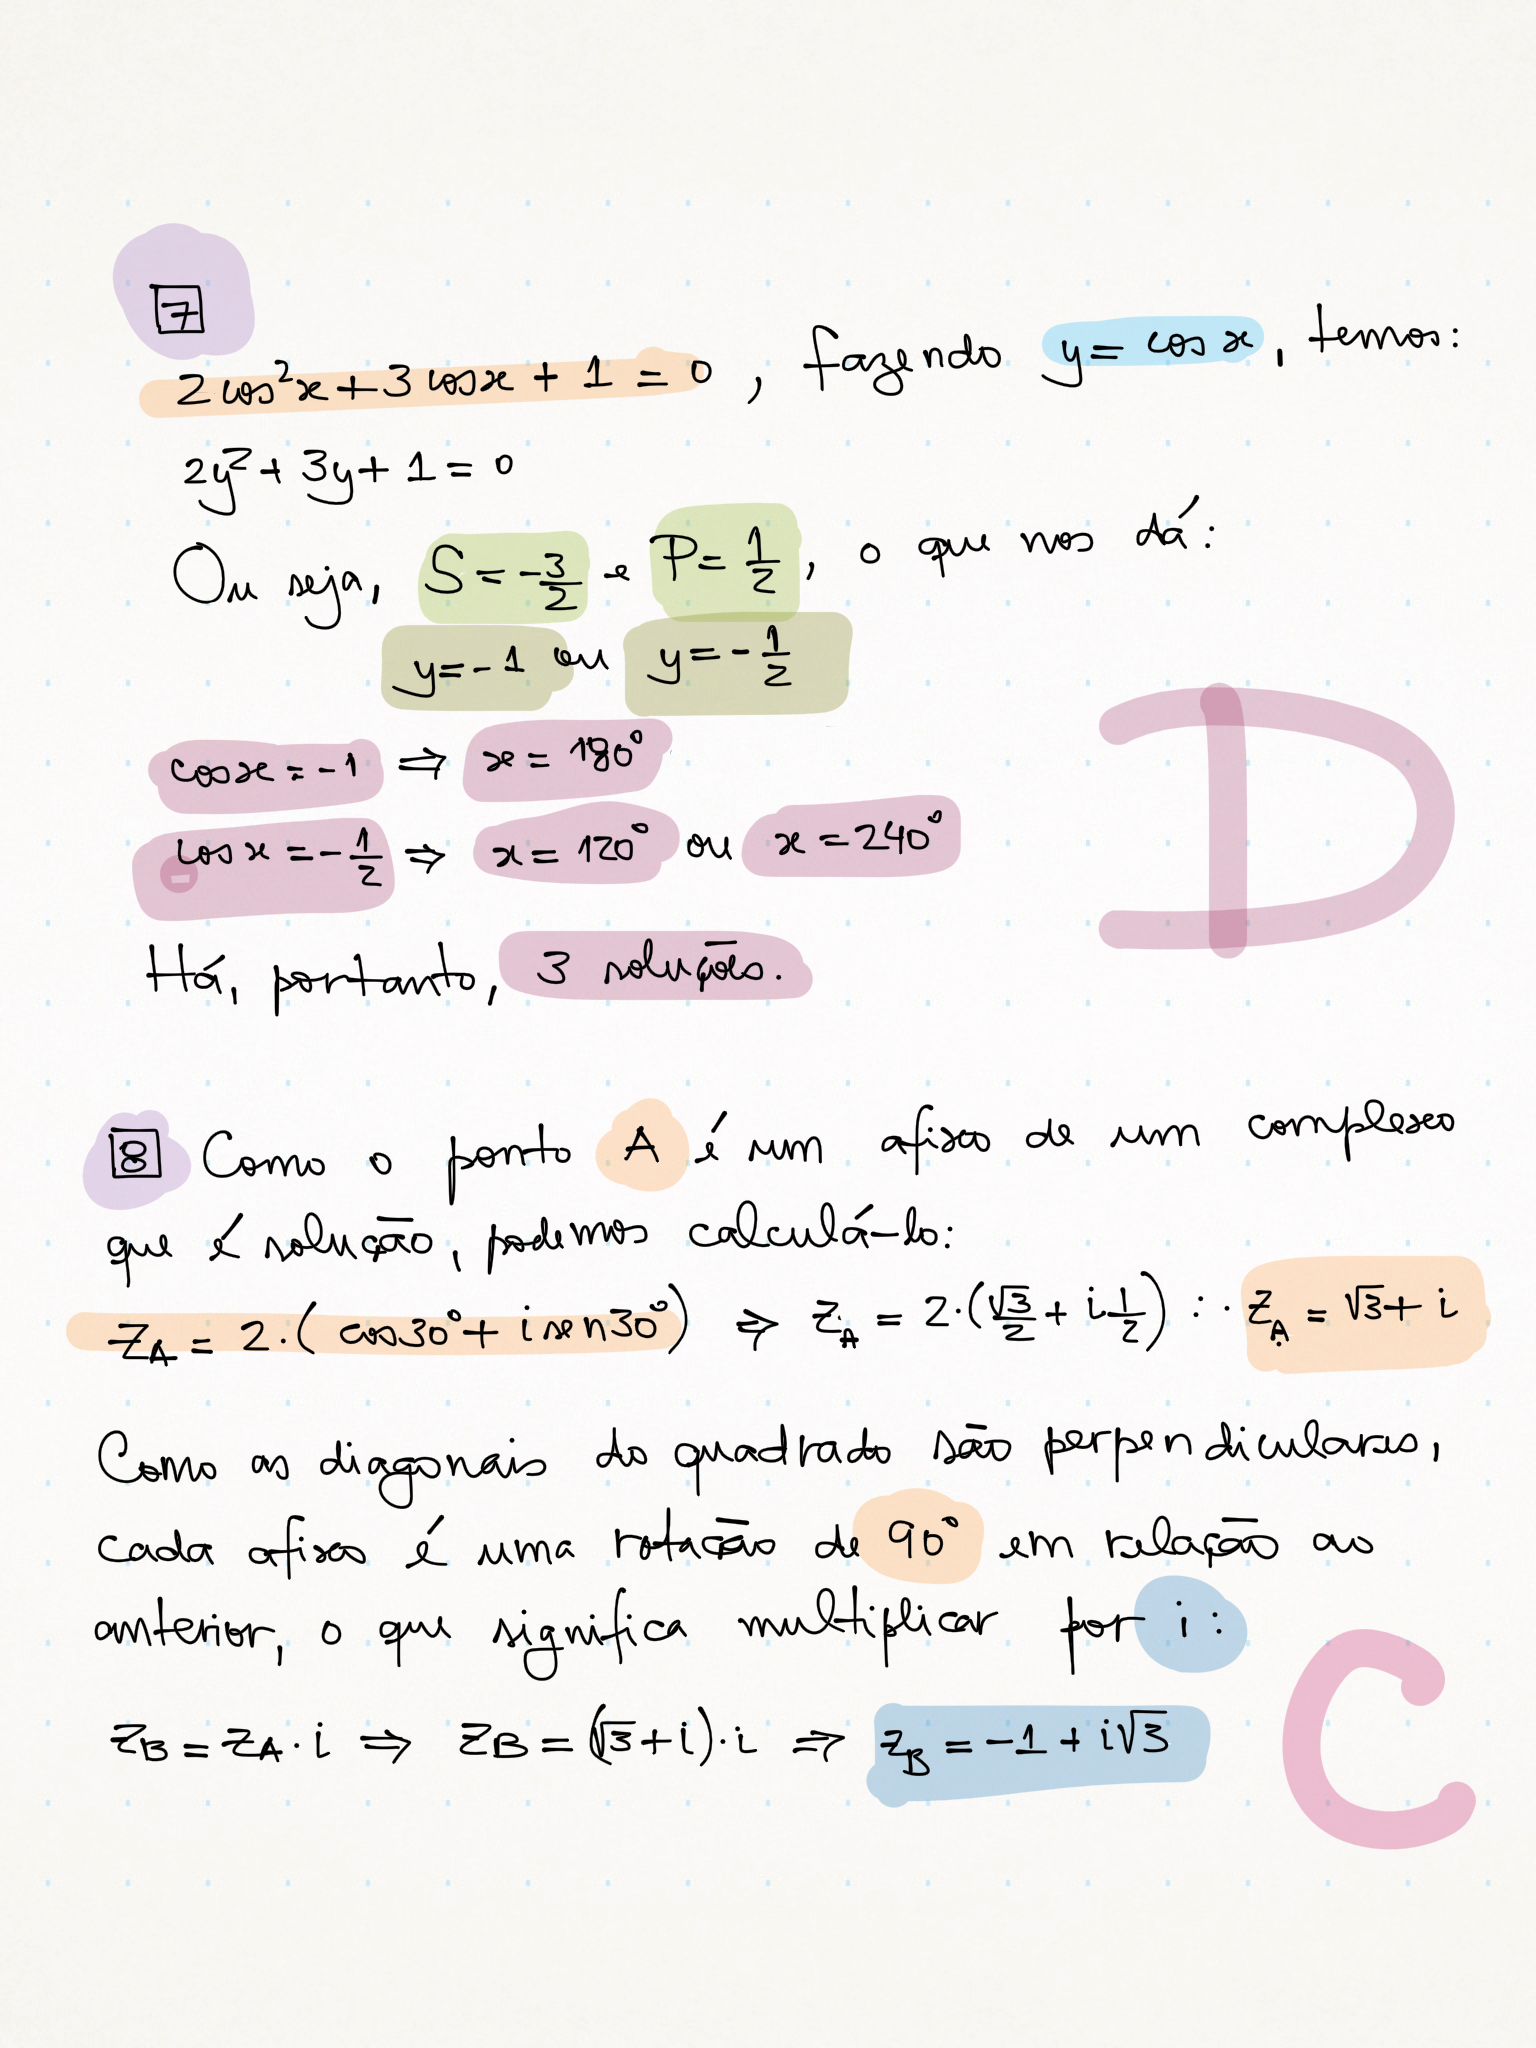 7
2cos²x + 3cosx + 1 = 0, fazendo y = cos x, temos:
2y² + 3y + 1 = 0
Ou seja, S = -3/2 e P = 1/2, o que nos dá:
y = -1 ou y = -1/2
cosx = -1 ⇒ x = 180°
cosx = -1/2 ⇒ x = 120° ou x = 240°
Há, portanto, 3 soluções.
D
8 Como o ponto A é um afixo de um complexo
que é solução, podemos calculá-lo:
Z_A = 2·(cos30° + i sen30°) ⇒ Z_A = 2·(√3/2 + i·1/2) ∴ Z_A = √3 + i
Como as diagonais do quadrado são perpendiculares,
cada afixo é uma rotação de 90° em relação ao
anterior, o que significa multiplicar por i:
Z_B = Z_A · i ⇒ Z_B = (√3 + i)·i ⇒ Z_B = -1 + i√3
C